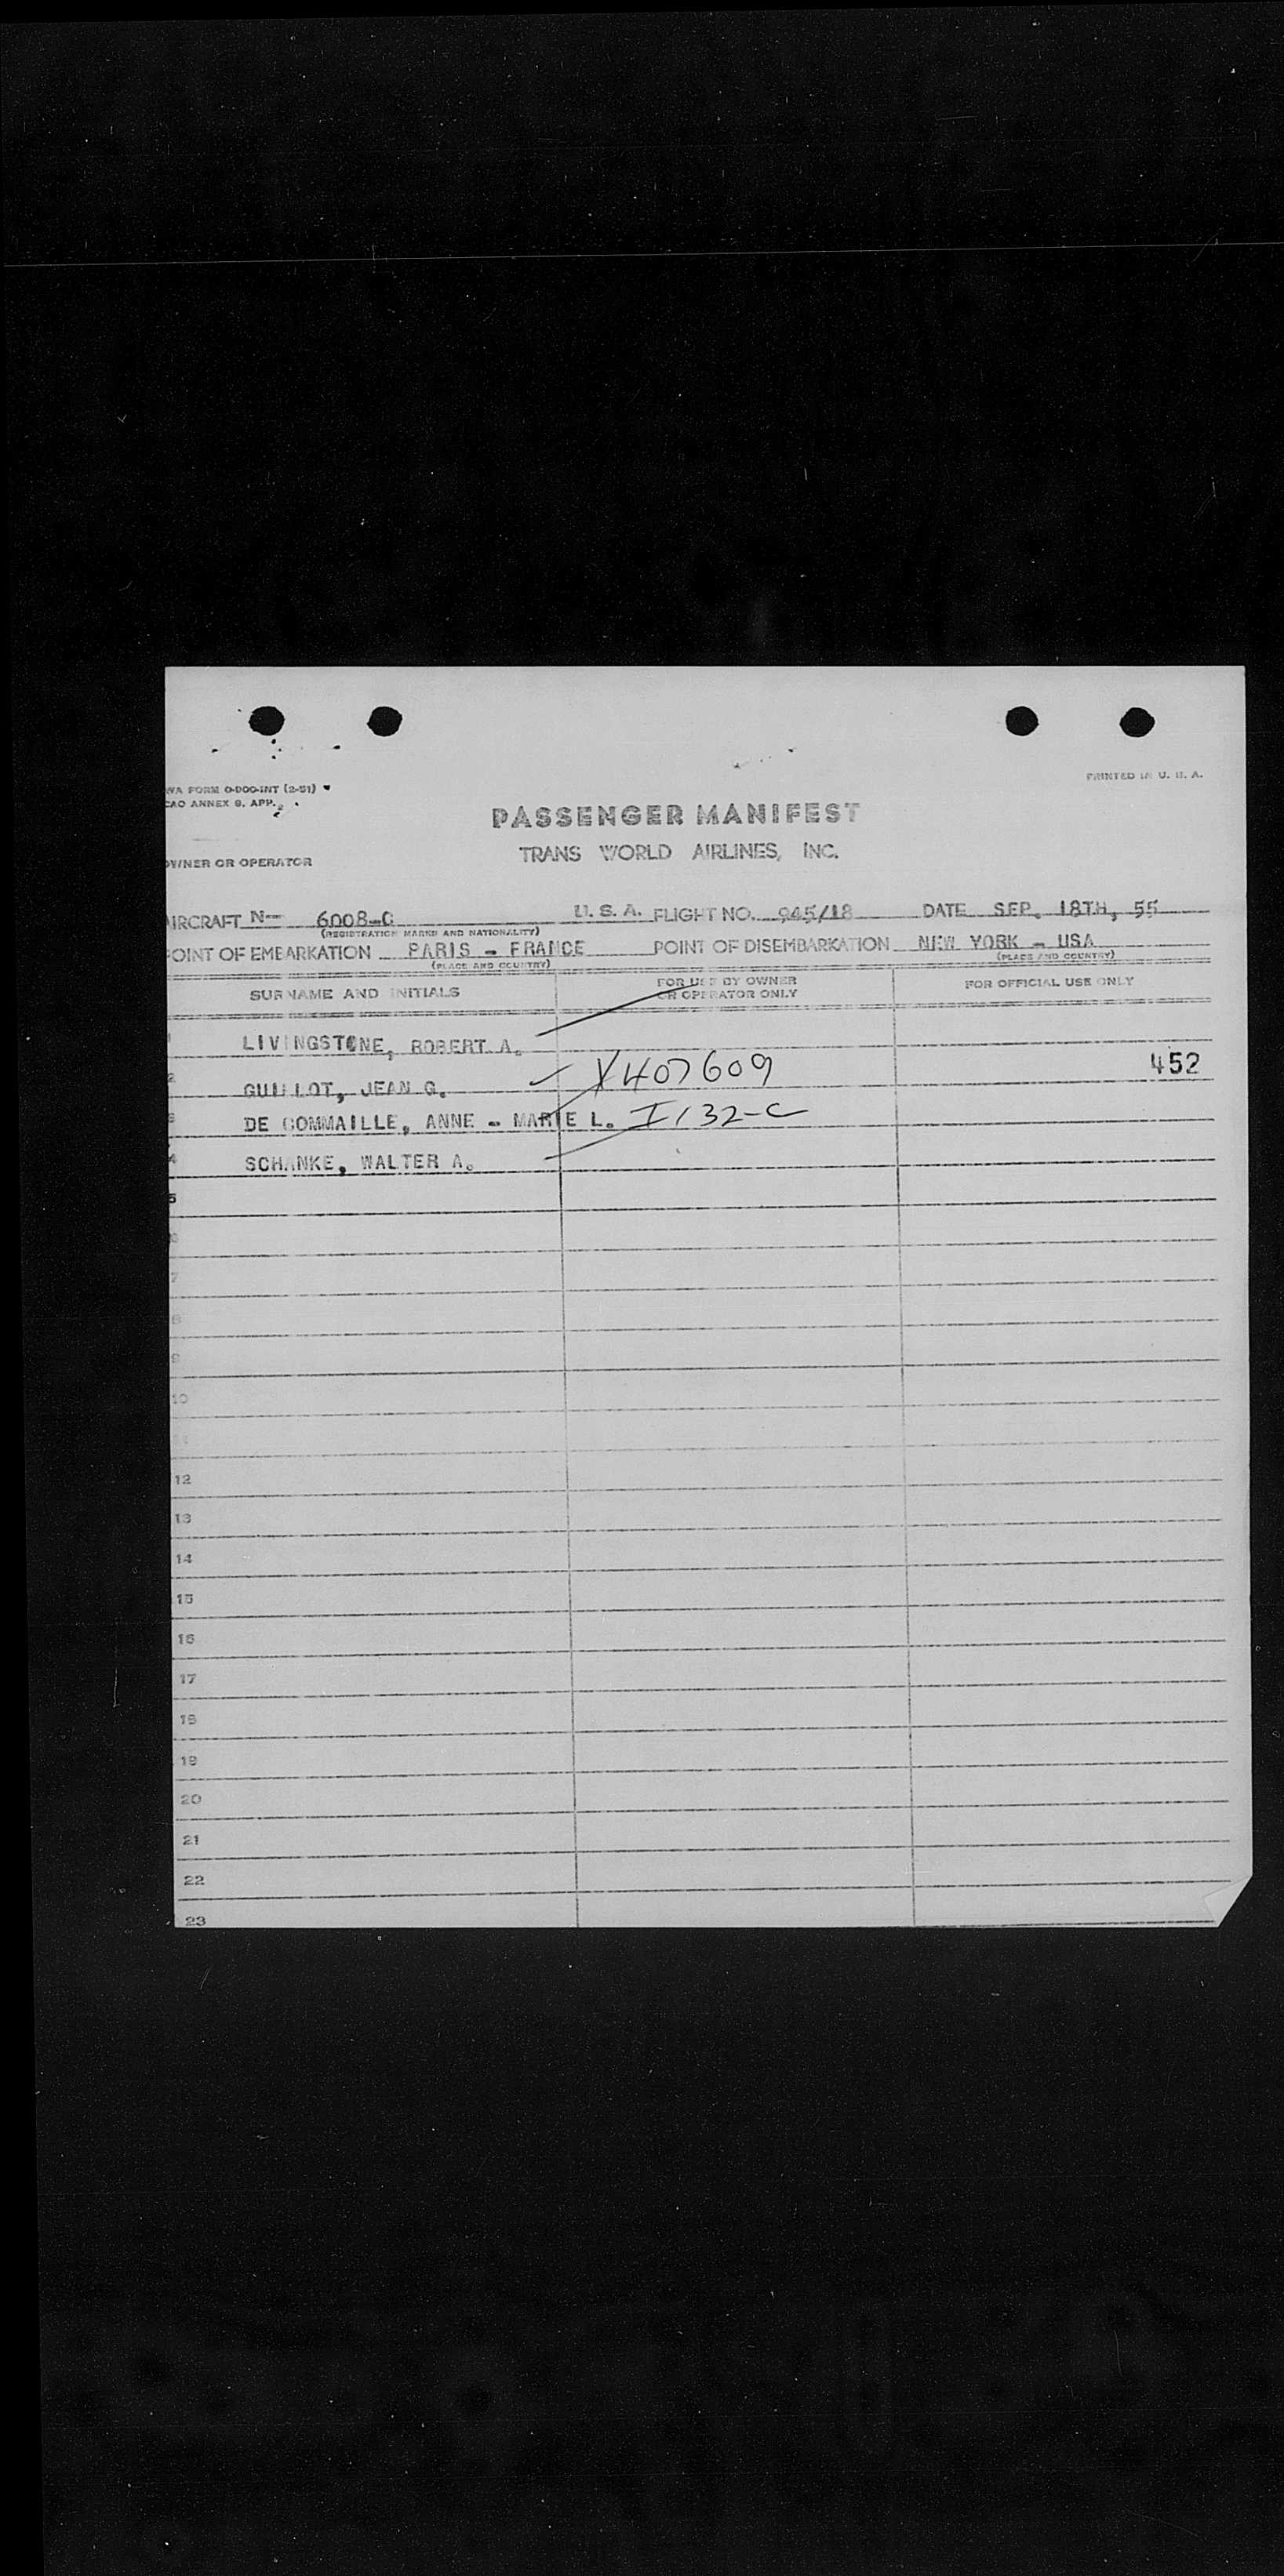 WA FORM O-900-INT (2-51)
CAO ANNEX 9, APP. 2
PRINTED IN U. S. A.
PASSENGER MANIFEST
TRANS WORLD AIRLINES, INC.
OWNER OR OPERATOR
AIRCRAFT N-- 6008-C U. S. A. FLIGHT NO. 945/18 DATE SEP. 18TH, 55
(REGISTRATION MARKS AND NATIONALITY)
POINT OF EMBARKATION PARIS - FRANCE POINT OF DISEMBARKATION NEW YORK - USA
(PLACE AND COUNTRY) (PLACE AND COUNTRY)
SURNAME AND INITIALS FOR USE BY OWNER OR OPERATOR ONLY FOR OFFICIAL USE ONLY
1 LIVINGSTONE, ROBERT A.
2 GUILLOT, JEAN G. X407609 452
3 DE COMMAILLE, ANNE - MARIE L. I132-C
4 SCHANKE, WALTER A.
5
6
7
8
9
10
11
12
13
14
15
16
17
18
19
20
21
22
23